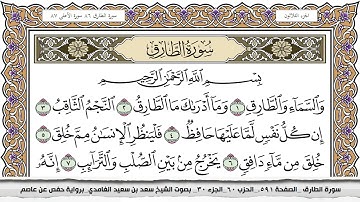 سورة الطارق ٨٦ سورة الأعلى ٨٧
الجزء الثلاثون
سُورَةُ الطَّارِقِ
بِسْمِ اللَّهِ الرَّحْمَٰنِ الرَّحِيمِ
وَالسَّمَاءِ وَالطَّارِقِ ١ وَمَا أَدْرَاكَ مَا الطَّارِقُ ٢ النَّجْمُ الثَّاقِبُ ٣
إِن كُلُّ نَفْسٍ لَّمَّا عَلَيْهَا حَافِظٌ ٤ فَلْيَنظُرِ الْإِنسَانُ مِمَّ خُلِقَ ٥
خُلِقَ مِن مَّاءٍ دَافِقٍ ٦ يَخْرُجُ مِن بَيْنِ الصُّلْبِ وَالتَّرَائِبِ ٧ إِنَّهُ
سورة الطارق _ الصفحة ٥٩١ _ الحزب ٦٠ _ الجزء ٣٠ _ بصوت الشيخ سعد بن سعيد الغامدي _ برواية حفص عن عاصم